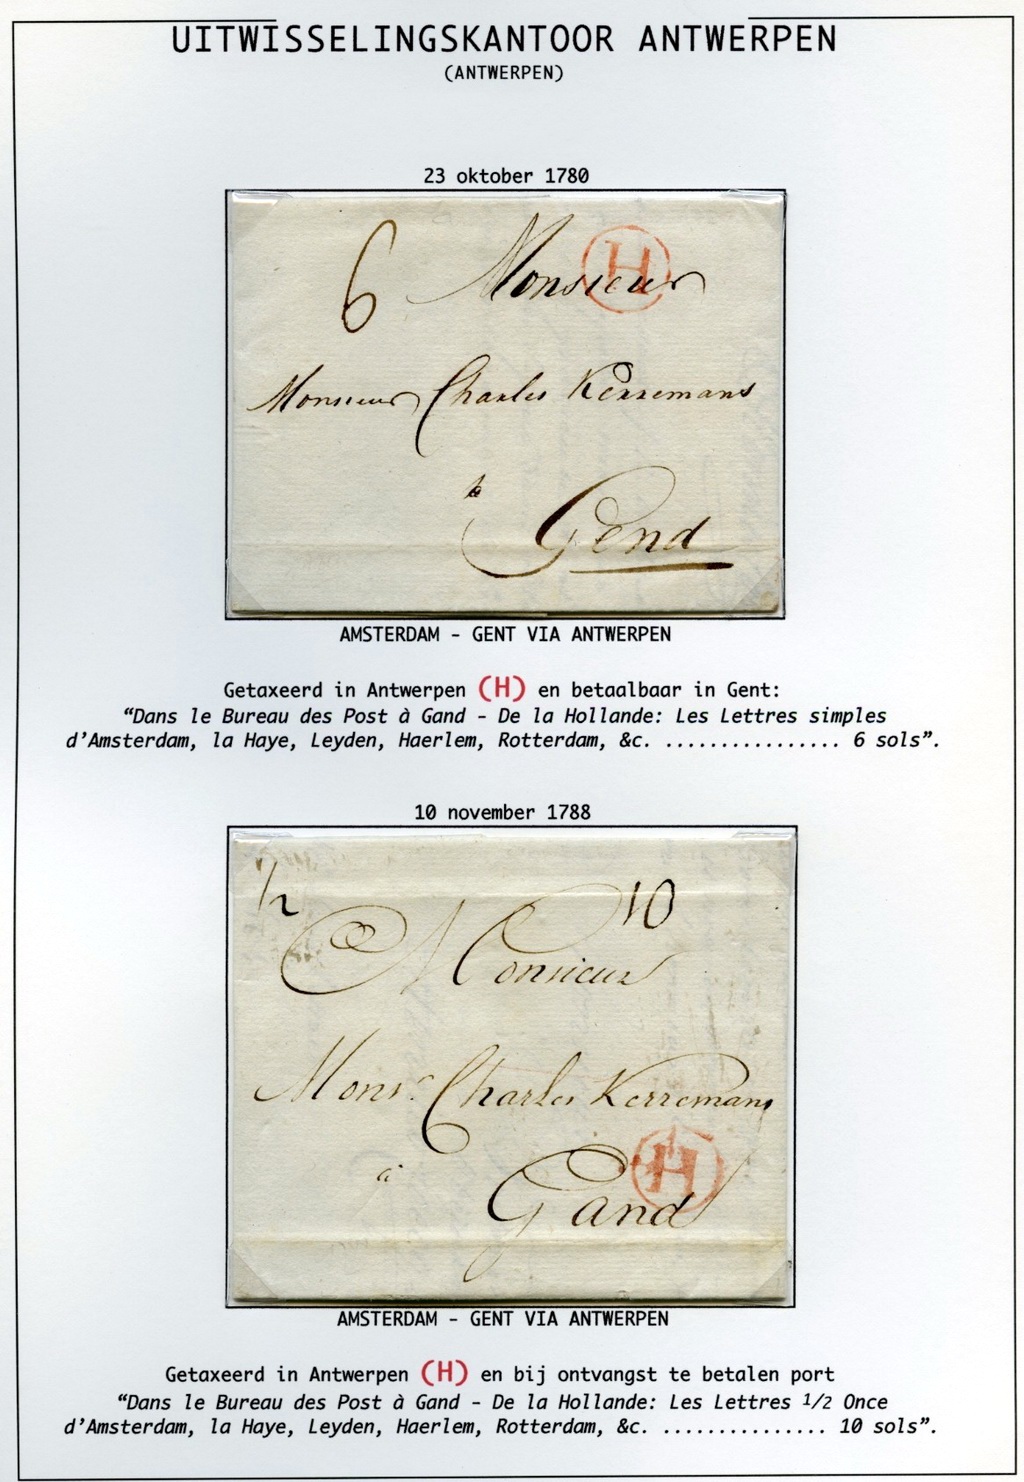 UITWISSELINGSKANTOOR ANTWERPEN
(ANTWERPEN)
23 oktober 1780
6 Monsieur H
Monsieur Charles Kerremans
a
Gend
AMSTERDAM - GENT VIA ANTWERPEN
Getaxeerd in Antwerpen (H) en betaalbaar in Gent:
“Dans le Bureau des Post à Gand - De la Hollande: Les Lettres simples
d’Amsterdam, la Haye, Leyden, Haerlem, Rotterdam, &c. ................ 6 sols”.
10 november 1788
1/2 10
Monsieur
Monsr Charles Kerremans
H
à
Gand
AMSTERDAM - GENT VIA ANTWERPEN
Getaxeerd in Antwerpen (H) en bij ontvangst te betalen port
“Dans le Bureau des Post à Gand - De la Hollande: Les Lettres 1/2 Once
d’Amsterdam, la Haye, Leyden, Haerlem, Rotterdam, &c. ............... 10 sols”.